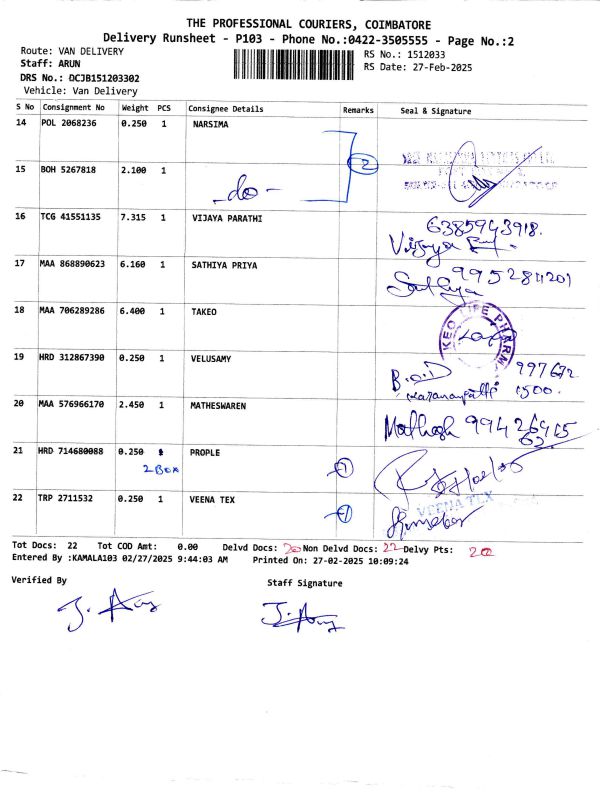 THE PROFESSIONAL COURIERS, COIMBATORE
Delivery Runsheet - P103 - Phone No.:0422-3505555 - Page No.:2
Route: VAN DELIVERY
RS No.: 1512033
Staff: ARUN
RS Date: 27-Feb-2025
DRS No.: DCJB151203302
Vehicle: Van Delivery
S No Consignment No Weight PCS Consignee Details Remarks Seal & Signature
14 POL 2068236 0.250 1 NARSIMA
2
15 BOH 5267818 2.100 1
-do-
16 TCG 41551135 7.315 1 VIJAYA PARATHI
6385943918.
Vijaya
17 MAA 868890623 6.160 1 SATHIYA PRIYA
995284201
Sathya
18 MAA 706289286 6.400 1 TAKEO
KEO LIFE PHARM
19 HRD 312867390 0.250 1 VELUSAMY
B.O.D 997672
1500.
20 MAA 576966170 2.450 1 MATHESWAREN
Mathesh 99426415
62.
21 HRD 714680088 0.250 PROPLE
2 BOX
22 TRP 2711532 0.250 1 VEENA TEX
VEENA TEX
Tot Docs: 22 Tot COD Amt: 0.00 Delvd Docs: 20 Non Delvd Docs: 22 Delvy Pts: 20
Entered By :KAMALA103 02/27/2025 9:44:03 AM Printed On: 27-02-2025 10:09:24
Verified By
Staff Signature
J. Arun
J. Arun